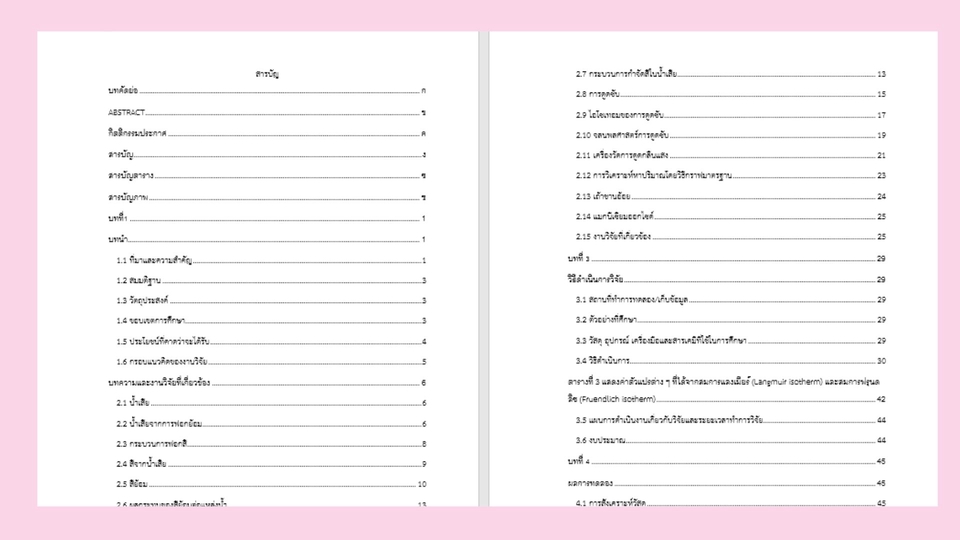 สารบัญ
บทคัดย่อ ก
ABSTRACT ข
กิตติกรรมประกาศ ค
สารบัญ ง
สารบัญตาราง ซ
สารบัญภาพ ซ
บทที่1 1
บทนำ 1
1.1 ที่มาและความสำคัญ 1
1.2 สมมติฐาน 3
1.3 วัตถุประสงค์ 3
1.4 ขอบเขตการศึกษา 3
1.5 ประโยชน์ที่คาดว่าจะได้รับ 4
1.6 กรอบแนวคิดของงานวิจัย 5
บทความและงานวิจัยที่เกี่ยวข้อง 6
2.1 น้ำเสีย 6
2.2 น้ำเสียจากการฟอกย้อม 6
2.3 กระบวนการฟอกสี 8
2.4 สีจากน้ำเสีย 9
2.5 สีย้อม 10
2.6 ผลกระทบของสีย้อมต่อแหล่งน้ำ 13
2.7 กระบวนการกำจัดสีในน้ำเสีย 13
2.8 การดูดซับ 15
2.9 ไอโซเทอมของการดูดซับ 17
2.10 จลนพลศาสตร์การดูดซับ 19
2.11 เครื่องวัดการดูดกลืนแสง 21
2.12 การวิเคราะห์หาปริมาณโดยวิธีกราฟมาตรฐาน 23
2.13 เถ้าชานอ้อย 24
2.14 แมกนีเซียมออกไซด์ 25
2.15 งานวิจัยที่เกี่ยวข้อง 25
บทที่ 3 29
วิธีดำเนินการวิจัย 29
3.1 สถานที่ทำการทดลอง/เก็บข้อมูล 29
3.2 ตัวอย่างที่ศึกษา 29
3.3 วัสดุ อุปกรณ์ เครื่องมือและสารเคมีที่ใช้ในการศึกษา 29
3.4 วิธีดำเนินการ 30
ตารางที่ 3 แสดงค่าตัวแปรต่าง ๆ ที่ได้จากสมการแลงเมียร์ (Langmuir isotherm) และสมการฟรุนด
ลิช (Fruendlich isotherm) 42
3.5 แผนการดำเนินงานเกี่ยวกับวิจัยและระยะเวลาทำการวิจัย 44
3.6 งบประมาณ 44
บทที่ 4 45
ผลการทดลอง 45
4.1 การสังเคราะห์วัสดุ 45